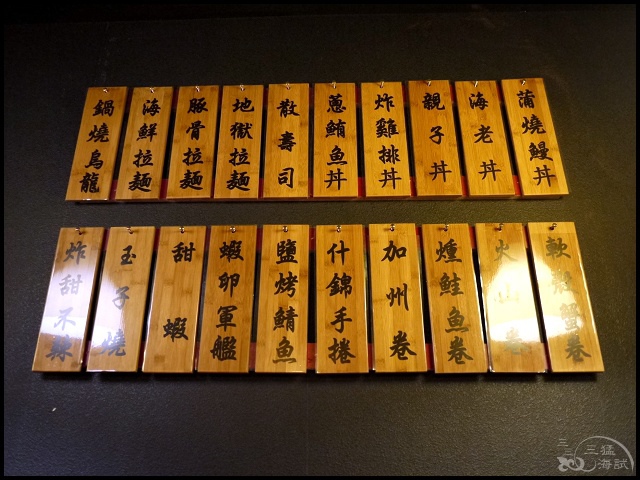 蒲燒鰻丼
海老丼
親子丼
炸雞排丼
蔥鮪魚丼
散壽司
地獄拉麵
豚骨拉麵
海鮮拉麵
鍋燒烏龍
軟殼蟹卷
火山卷
燻鮭魚卷
加州卷
什錦手捲
鹽烤鯖魚
蝦卵軍艦
甜蝦
玉子燒
炸甜不辣
三猛
海試